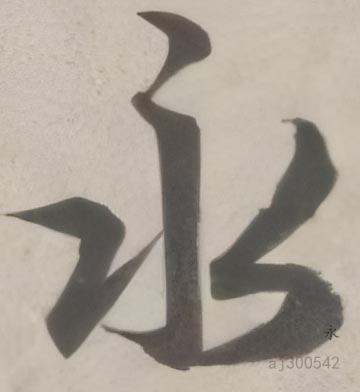 永
永
aj300542